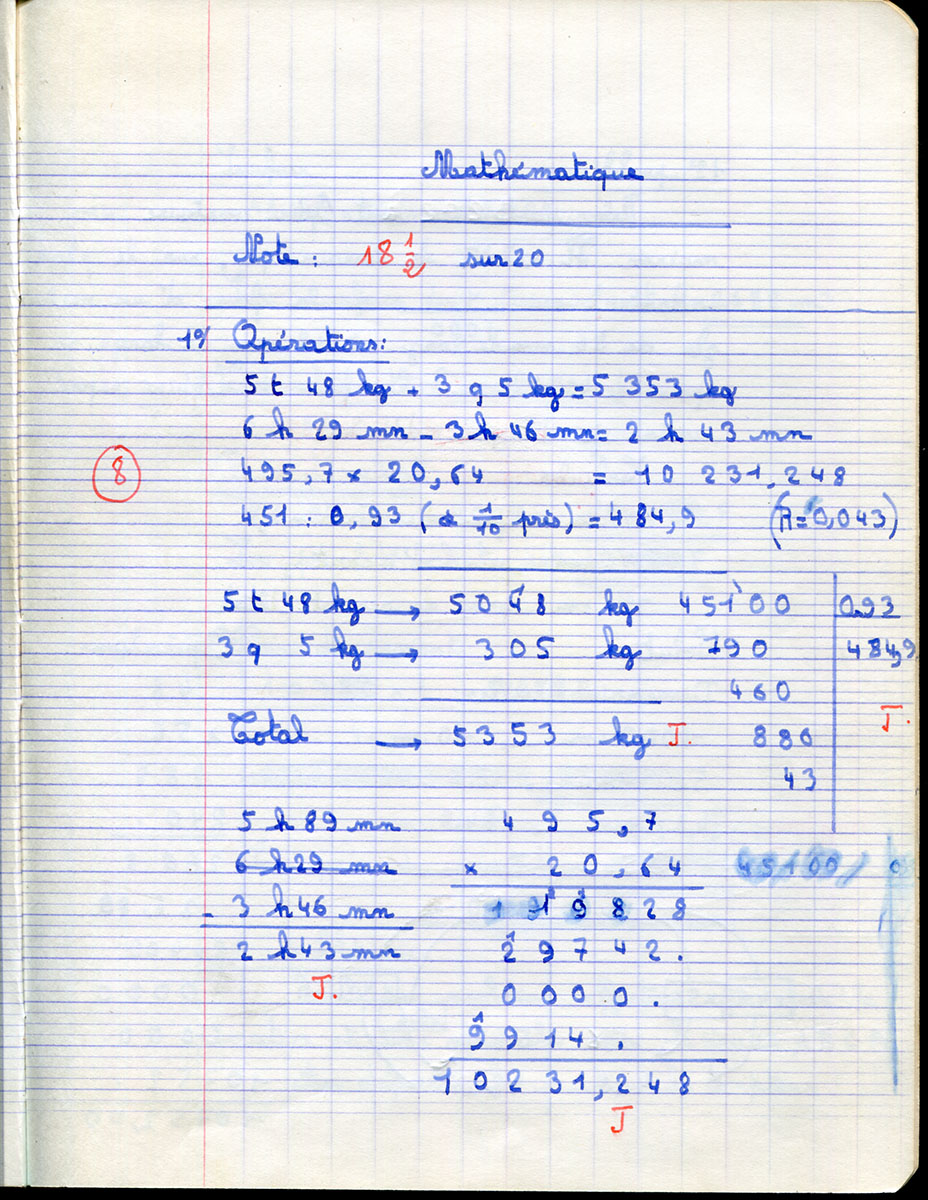 Mathématique
Note : 18 1/2 sur 20
1º/ Opérations:
5 t 48 kg + 3 q 5 kg = 5 353 kg
6 h 29 mn - 3 h 46 mn = 2 h 43 mn
8
495,7 × 20,64 = 10 231,248
451 : 0,93 (à 1/10 près) = 484,9 (R=0,043)
5 t 48 kg → 5048 kg
3 q 5 kg → 305 kg
Total → 5353 kg J.
45100 0,93
790 484,9
460
880
43
J.
5 h 89 mn
6 h 29 mn
- 3 h 46 mn
2 h 43 mn
J.
495,7
× 20,64
19828
29742.
0000.
9914.
10231,248
J